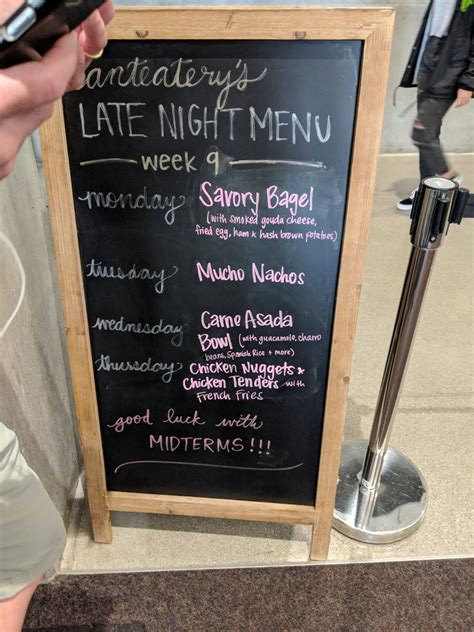 anteatery's
LATE NIGHT MENU
week 9
monday Savory Bagel
(with smoked gouda cheese,
fried egg, ham & hash brown potatoes)
tuesday Mucho Nachos
wednesday Carne Asada
Bowl (with guacamole, charro
beans, Spanish Rice + more)
thursday Chicken Nuggets &
Chicken Tenders with
French Fries
good luck with
MIDTERMS!!!